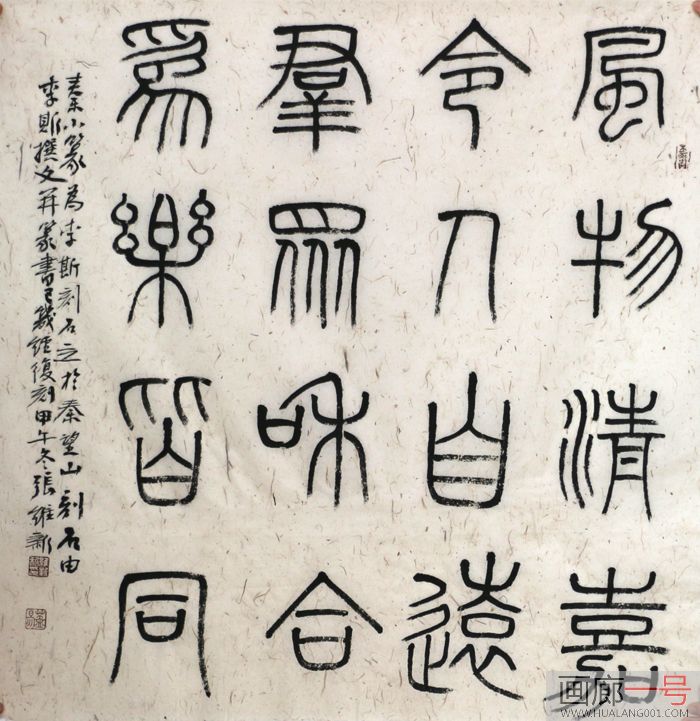 風物清嘉
令人自遠
羣眾和合
爲樂皆同
秦小篆為李斯刻石之於秦望山刻石由
李斯撰文并篆書已幾經復刻甲午冬張維新
画廊一号
WWW.HUALANG001.COM